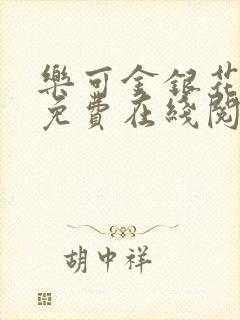 樂可金銀花
免費在綫閱
胡中祥